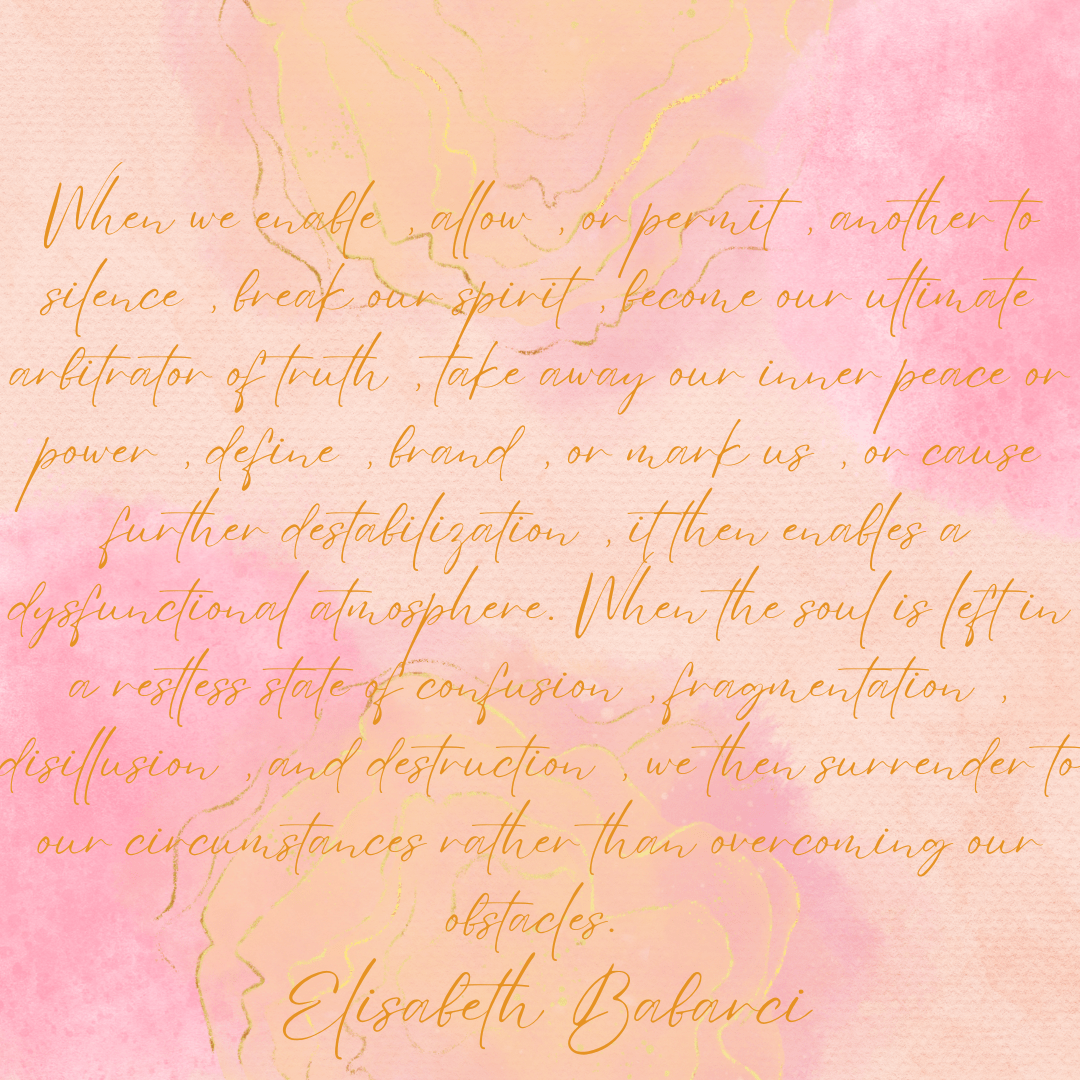 When we enable , allow , or permit , another to
silence , break our spirit , become our ultimate
arbitrator of truth , take away our inner peace or
power , define , brand , or mark us , or cause
further destabilization , it then enables a
dysfunctional atmosphere. When the soul is left in
a restless state of confusion , fragmentation ,
disillusion , and destruction , we then surrender to
our circumstances rather than overcoming our
obstacles.
Elisabeth Babarci